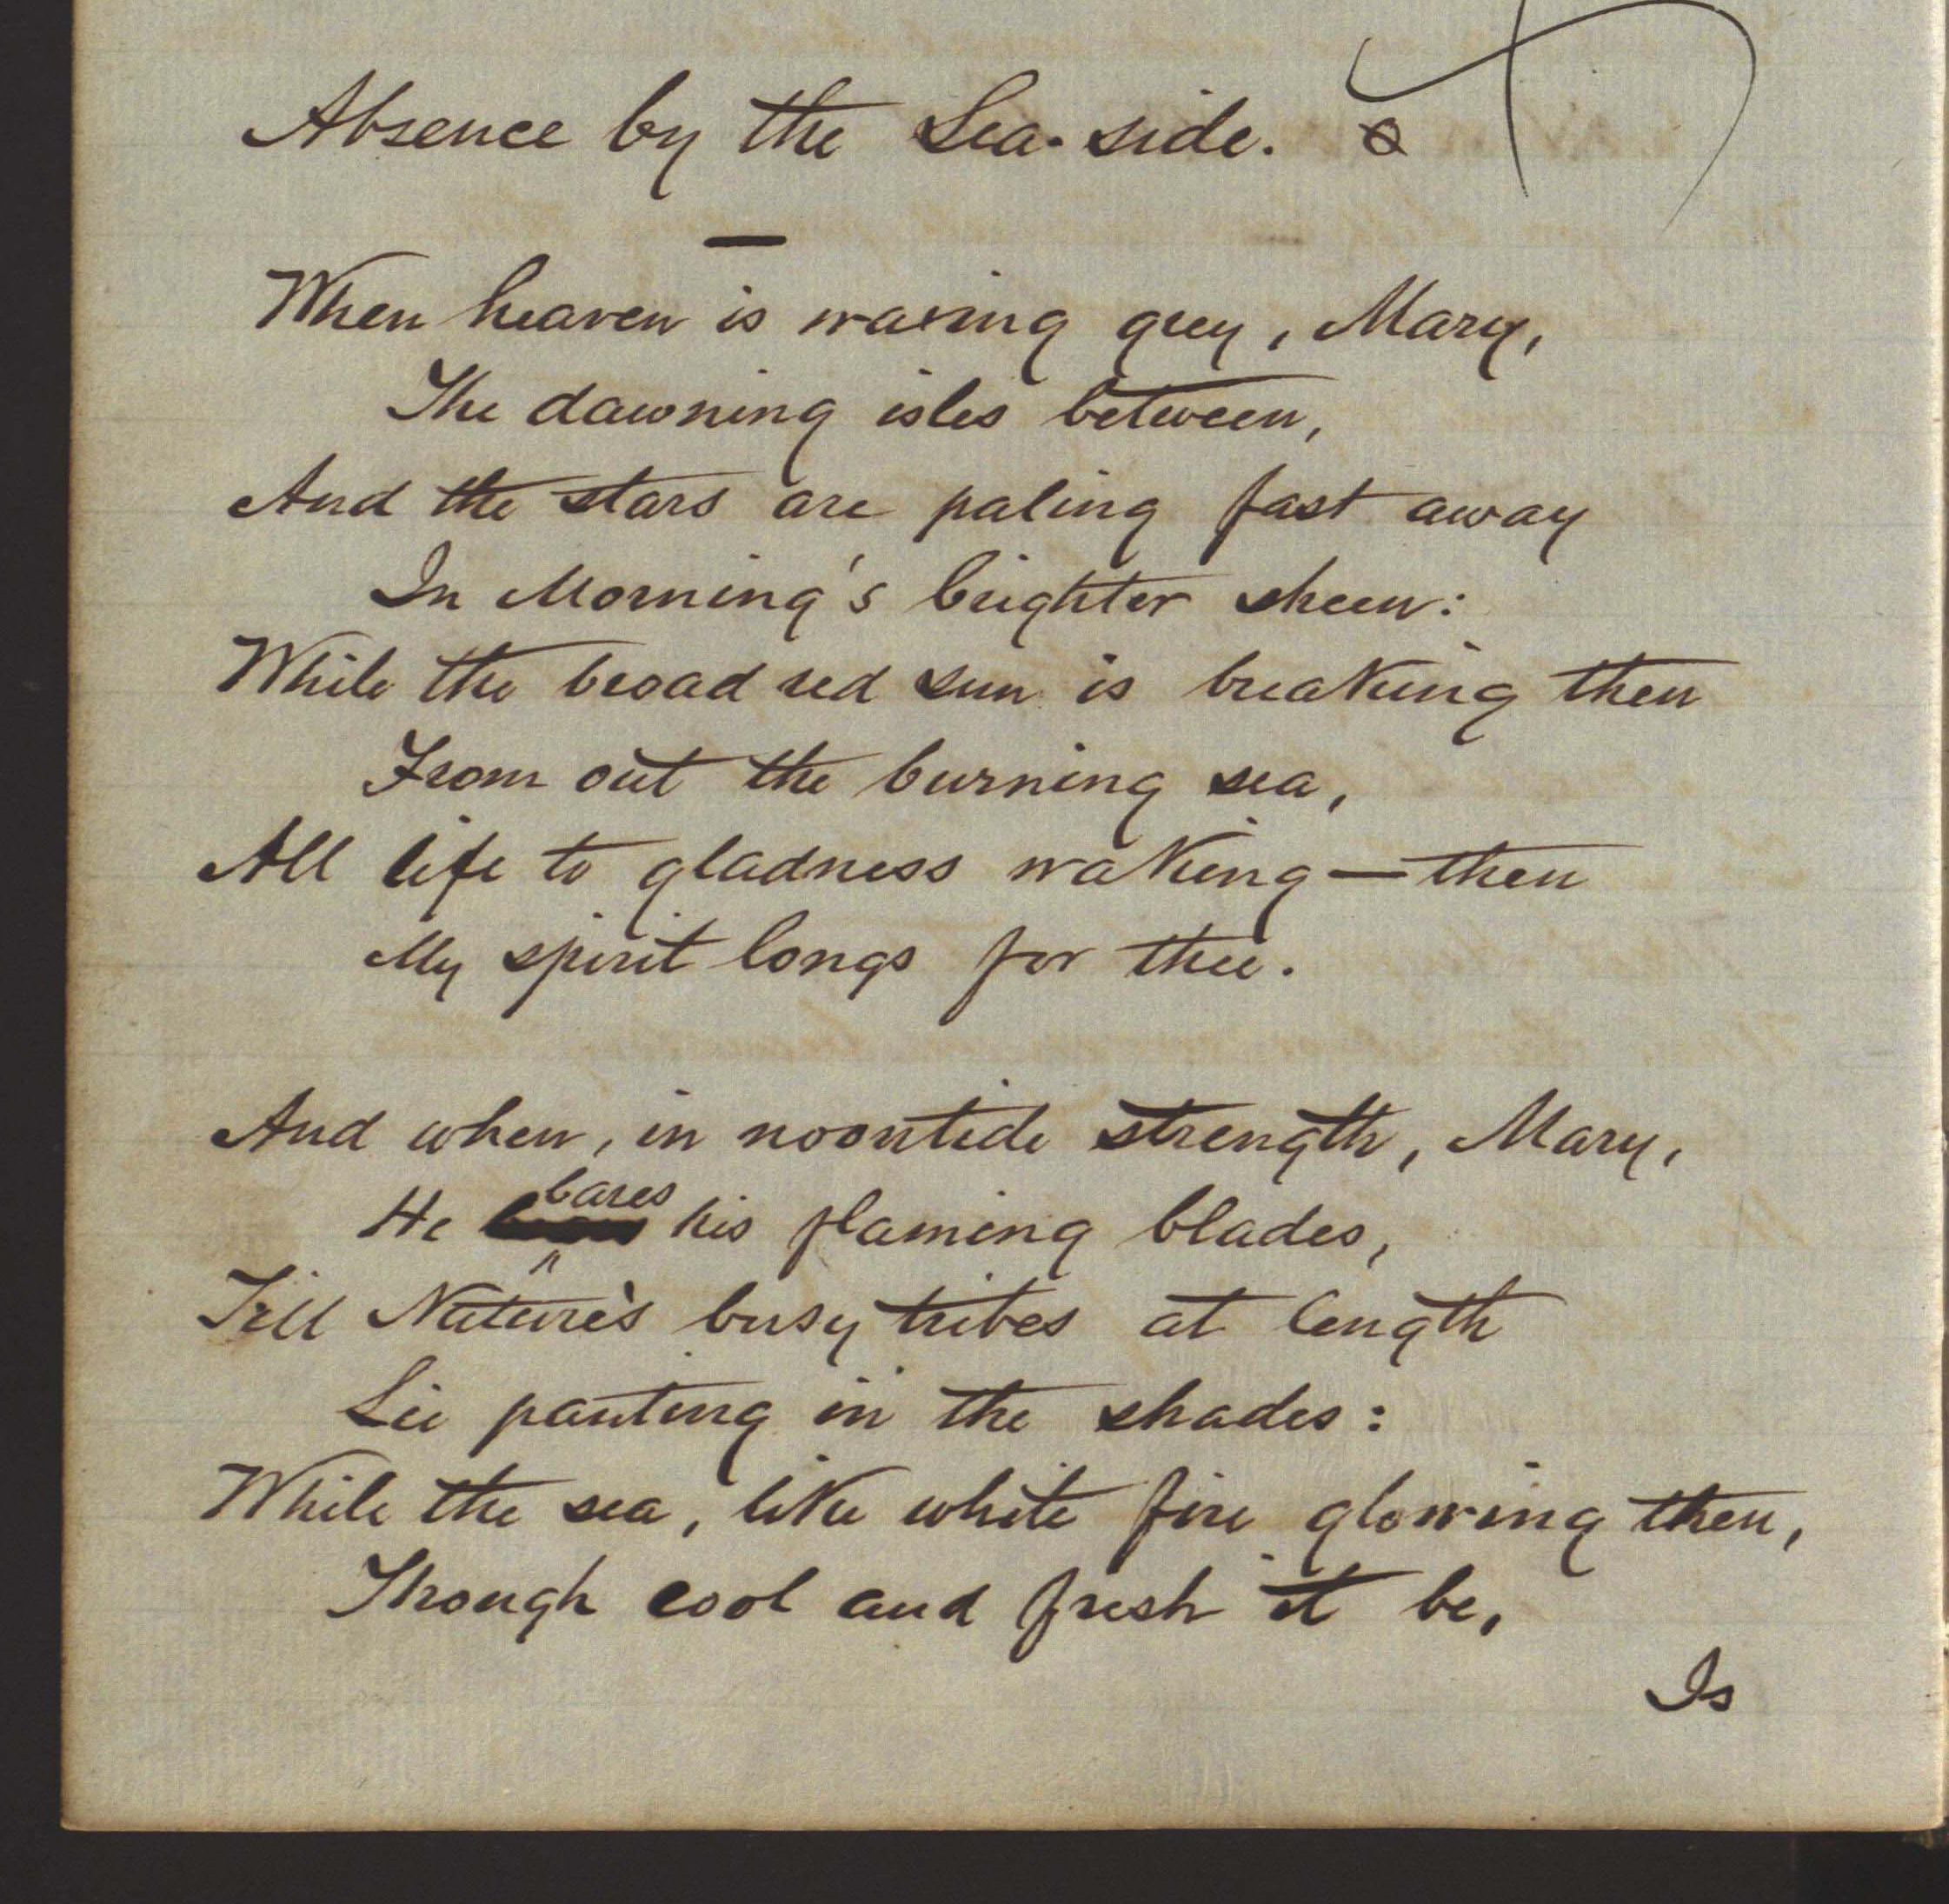 Absence by the Sea-side.
When heaven is waxing grey, Mary,
The dawning isles between,
And the stars are paling fast away
In Morning's brighter sheen:
While the broad red sun is breaking then
From out the burning sea,
All life to gladness waking—then
My spirit longs for thee.
And when, in noontide strength, Mary,
bares
He his flaming blades,
Till Nature's busy tribes at length
Lie panting in the shades:
While the sea, like white fire glowing then,
Though cool and fresh it be,
Is